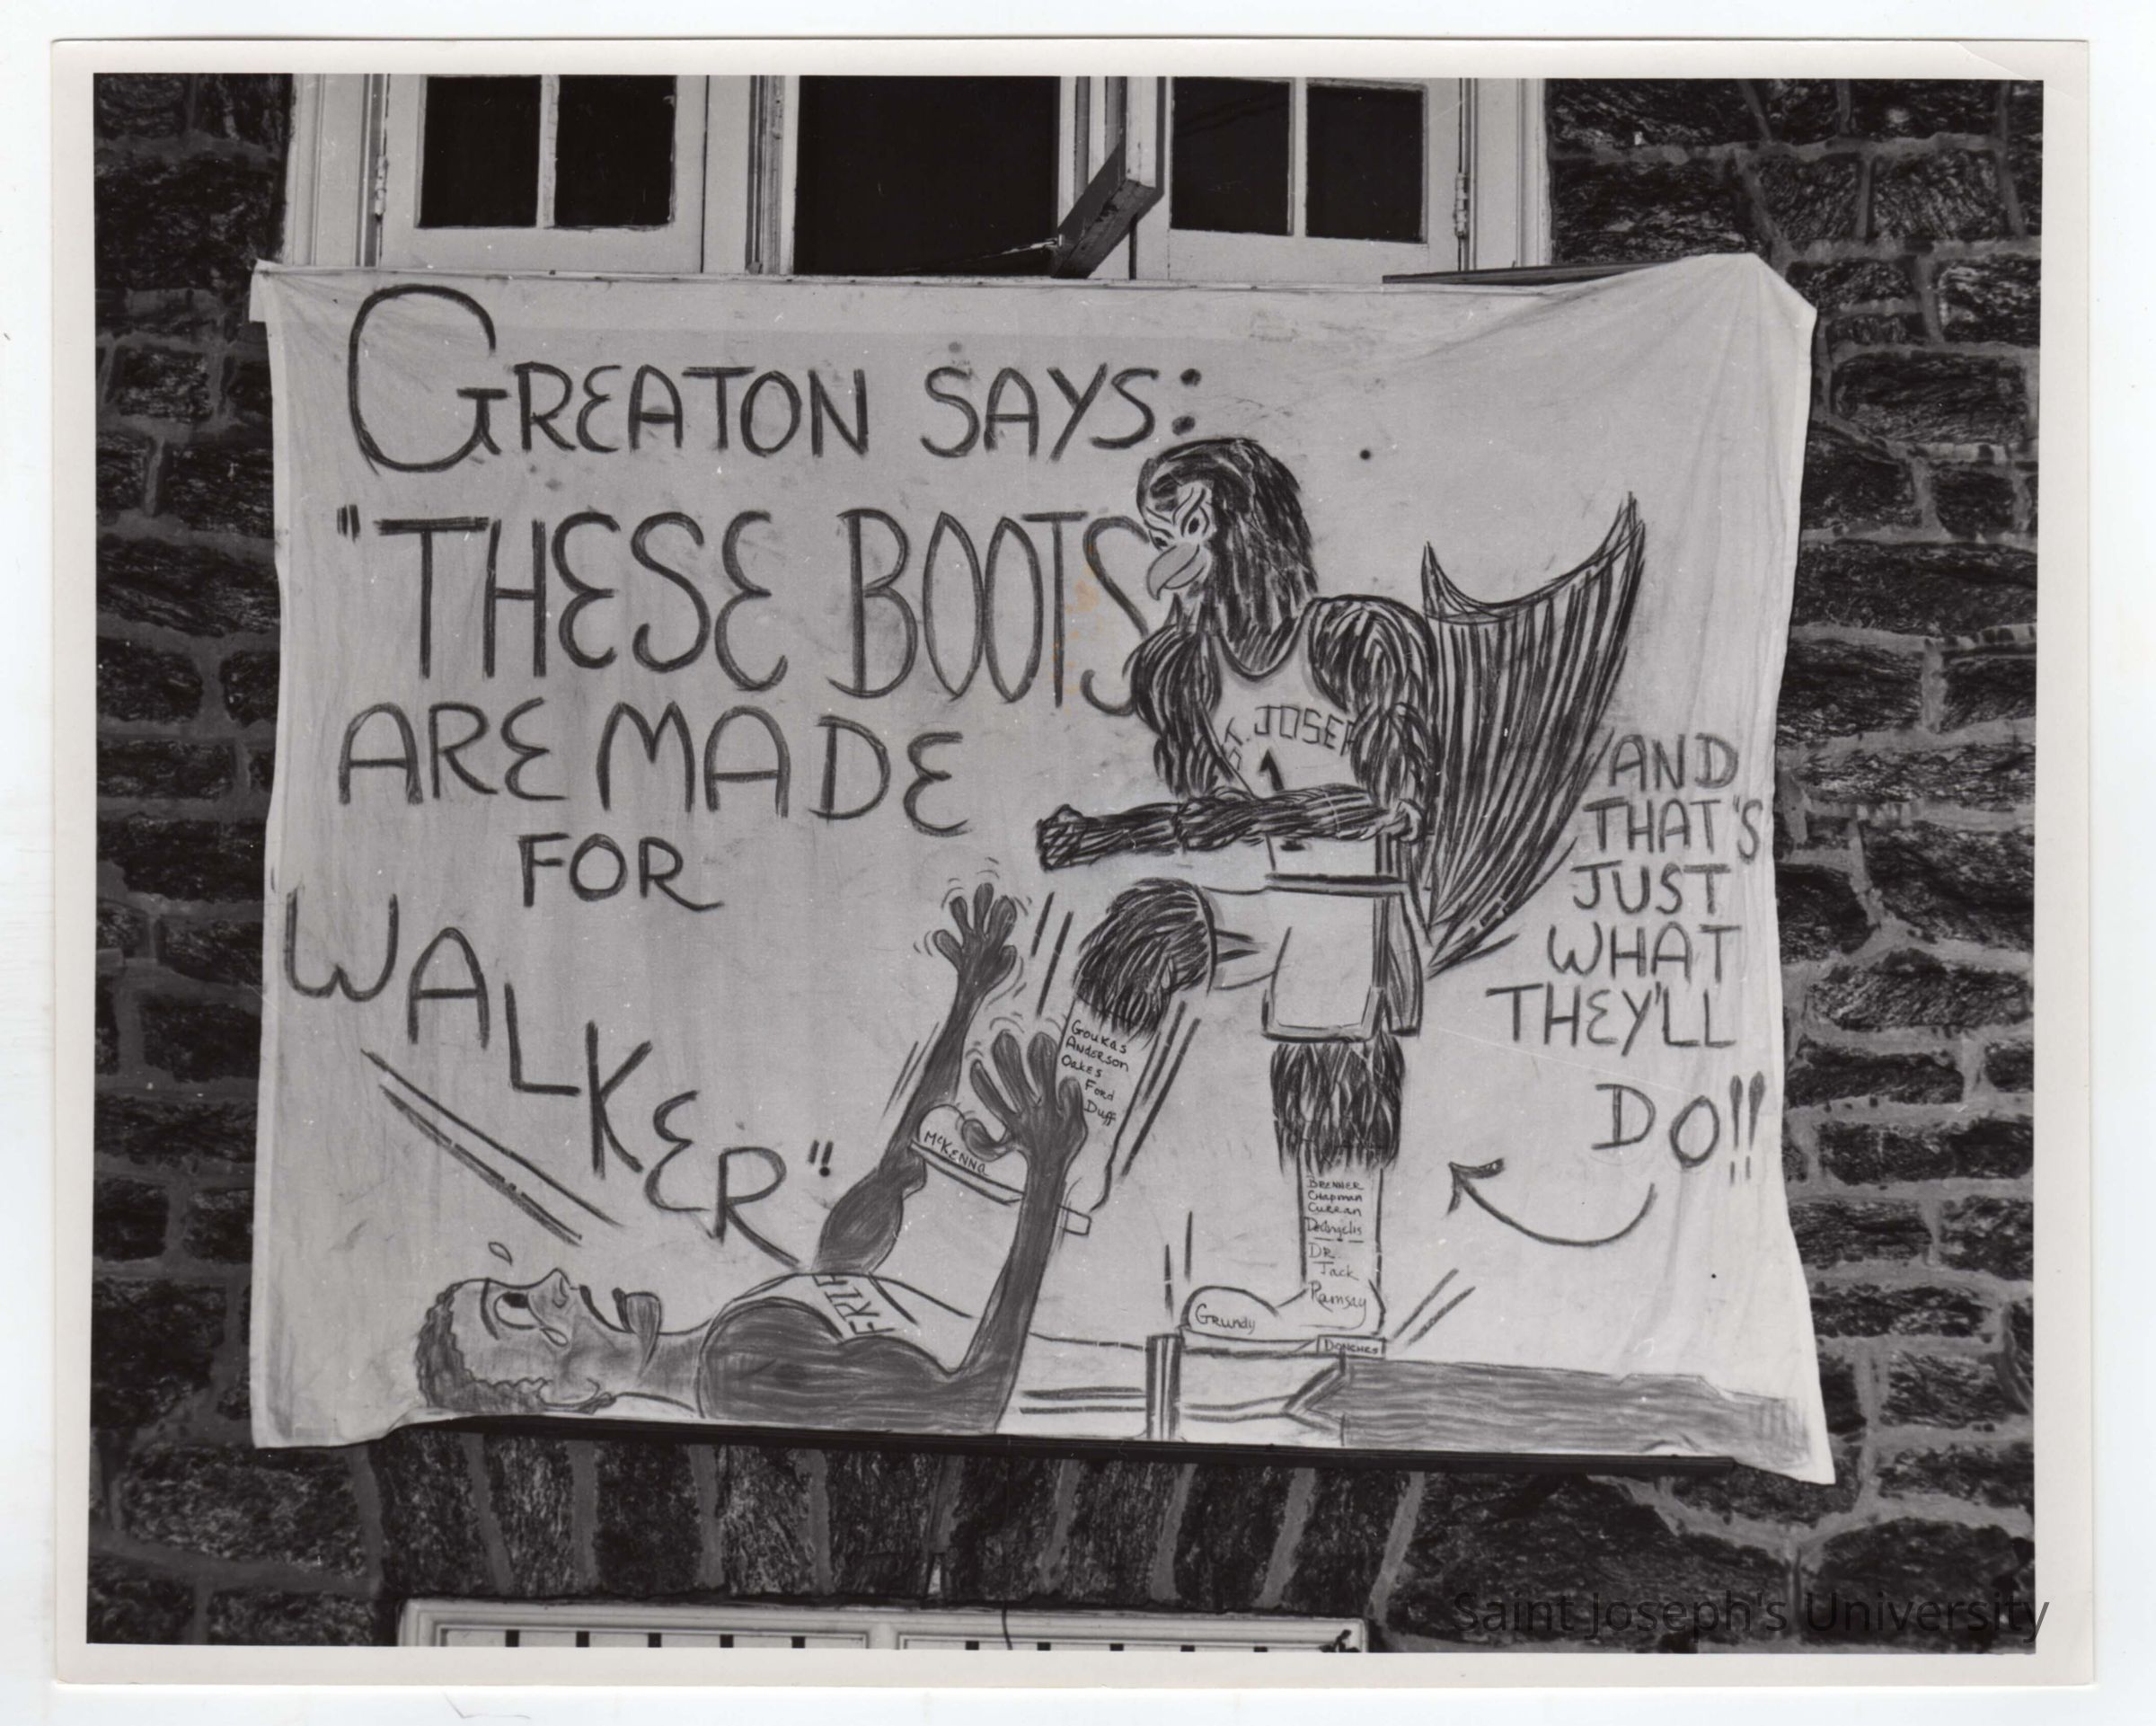 GREATON SAYS:
"THESE BOOTS
ARE MADE
FOR
WALKER"
AND
THAT'S
JUST
WHAT
THEY'LL
DO!!
ST. JOSEP
1
Goukas
Anderson
Oakes
Ford
Duff
McKenna
Brenner
Chapman
Curran
DeAngelis
Dr.
Jack
Ramsay
Grundy
Donches
FRIA
Saint Joseph's University